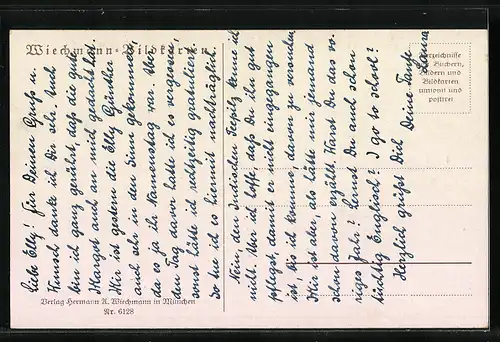 Wiechmann-Bildkarten
Liebe Elly! Für Deinen Gruß u.
Wunsch danke ich Dir sehr. Auch
bin ich ganz gerührt, daß die gute
Margret auch an mich gedacht hat.
Mir ist gestern die Elly Günther
auch sehr in den Sinn gekommen,
da es ja ihr Namenstag war. Aber
den Tag davor hatte ich es vergessen,
sonst hätte ich rechtzeitig gratuliert.
So tue ich es hiermit nachträglich.
Nein, den indischen kenne ich
nicht. Aber ich hoffe, daß Du ihn gut
pflegst, damit er nicht eingegangen
ist, bis ich komme, davon zu
Mir ist aber, als hätte mir jemand
schon davon erzählt. Hast Du das vo-
riges Jahr? Lernst Du auch schon
tüchtig Englisch? I go to school?
Herzlich grüßt Dich Deine Tante
Verzeichnisse
v. Büchern,
Bildern und
Bildkarten
umsonst und
postfrei
Verlag Hermann A. Wiechmann in München
Nr. 6128